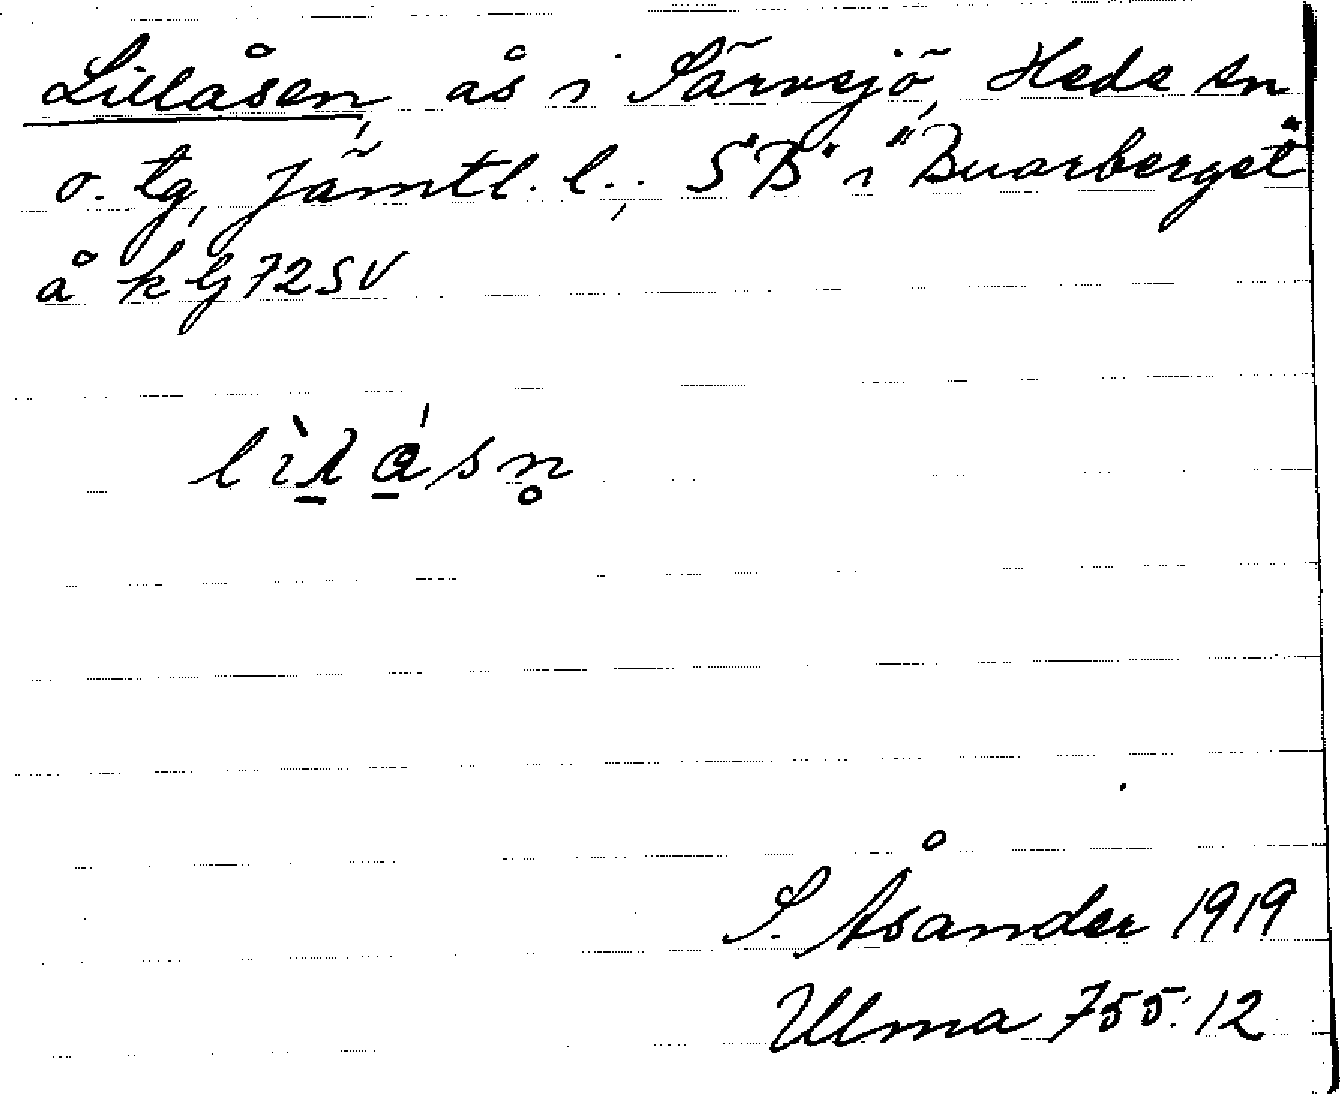 Lillåsen, ås i Särvsjö, Hede sn
o. tg, Jämtl. l.; S "B" i "Buarberget"
å kbj 72 SV
lìlås̀n̥
S. Åsander 1919
Ulma 755:12